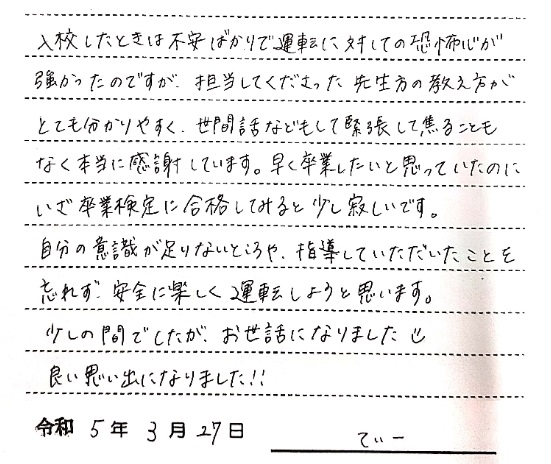 入校したときは不安ばかりで運転に対しての恐怖心が
強かったのですが、担当してくださった先生方の教え方が
とても分かりやすく、世間話などもして緊張して焦ることも
なく本当に感謝しています。早く卒業したいと思っていたのに
いざ卒業検定に合格してみると少し寂しいです。
自分の意識が足りないところや、指導していただいたことを
忘れず、安全に楽しく運転しようと思います。
少しの間でしたが、お世話になりました
良い思い出になりました!!
令和 5年 3月27日
てぃー